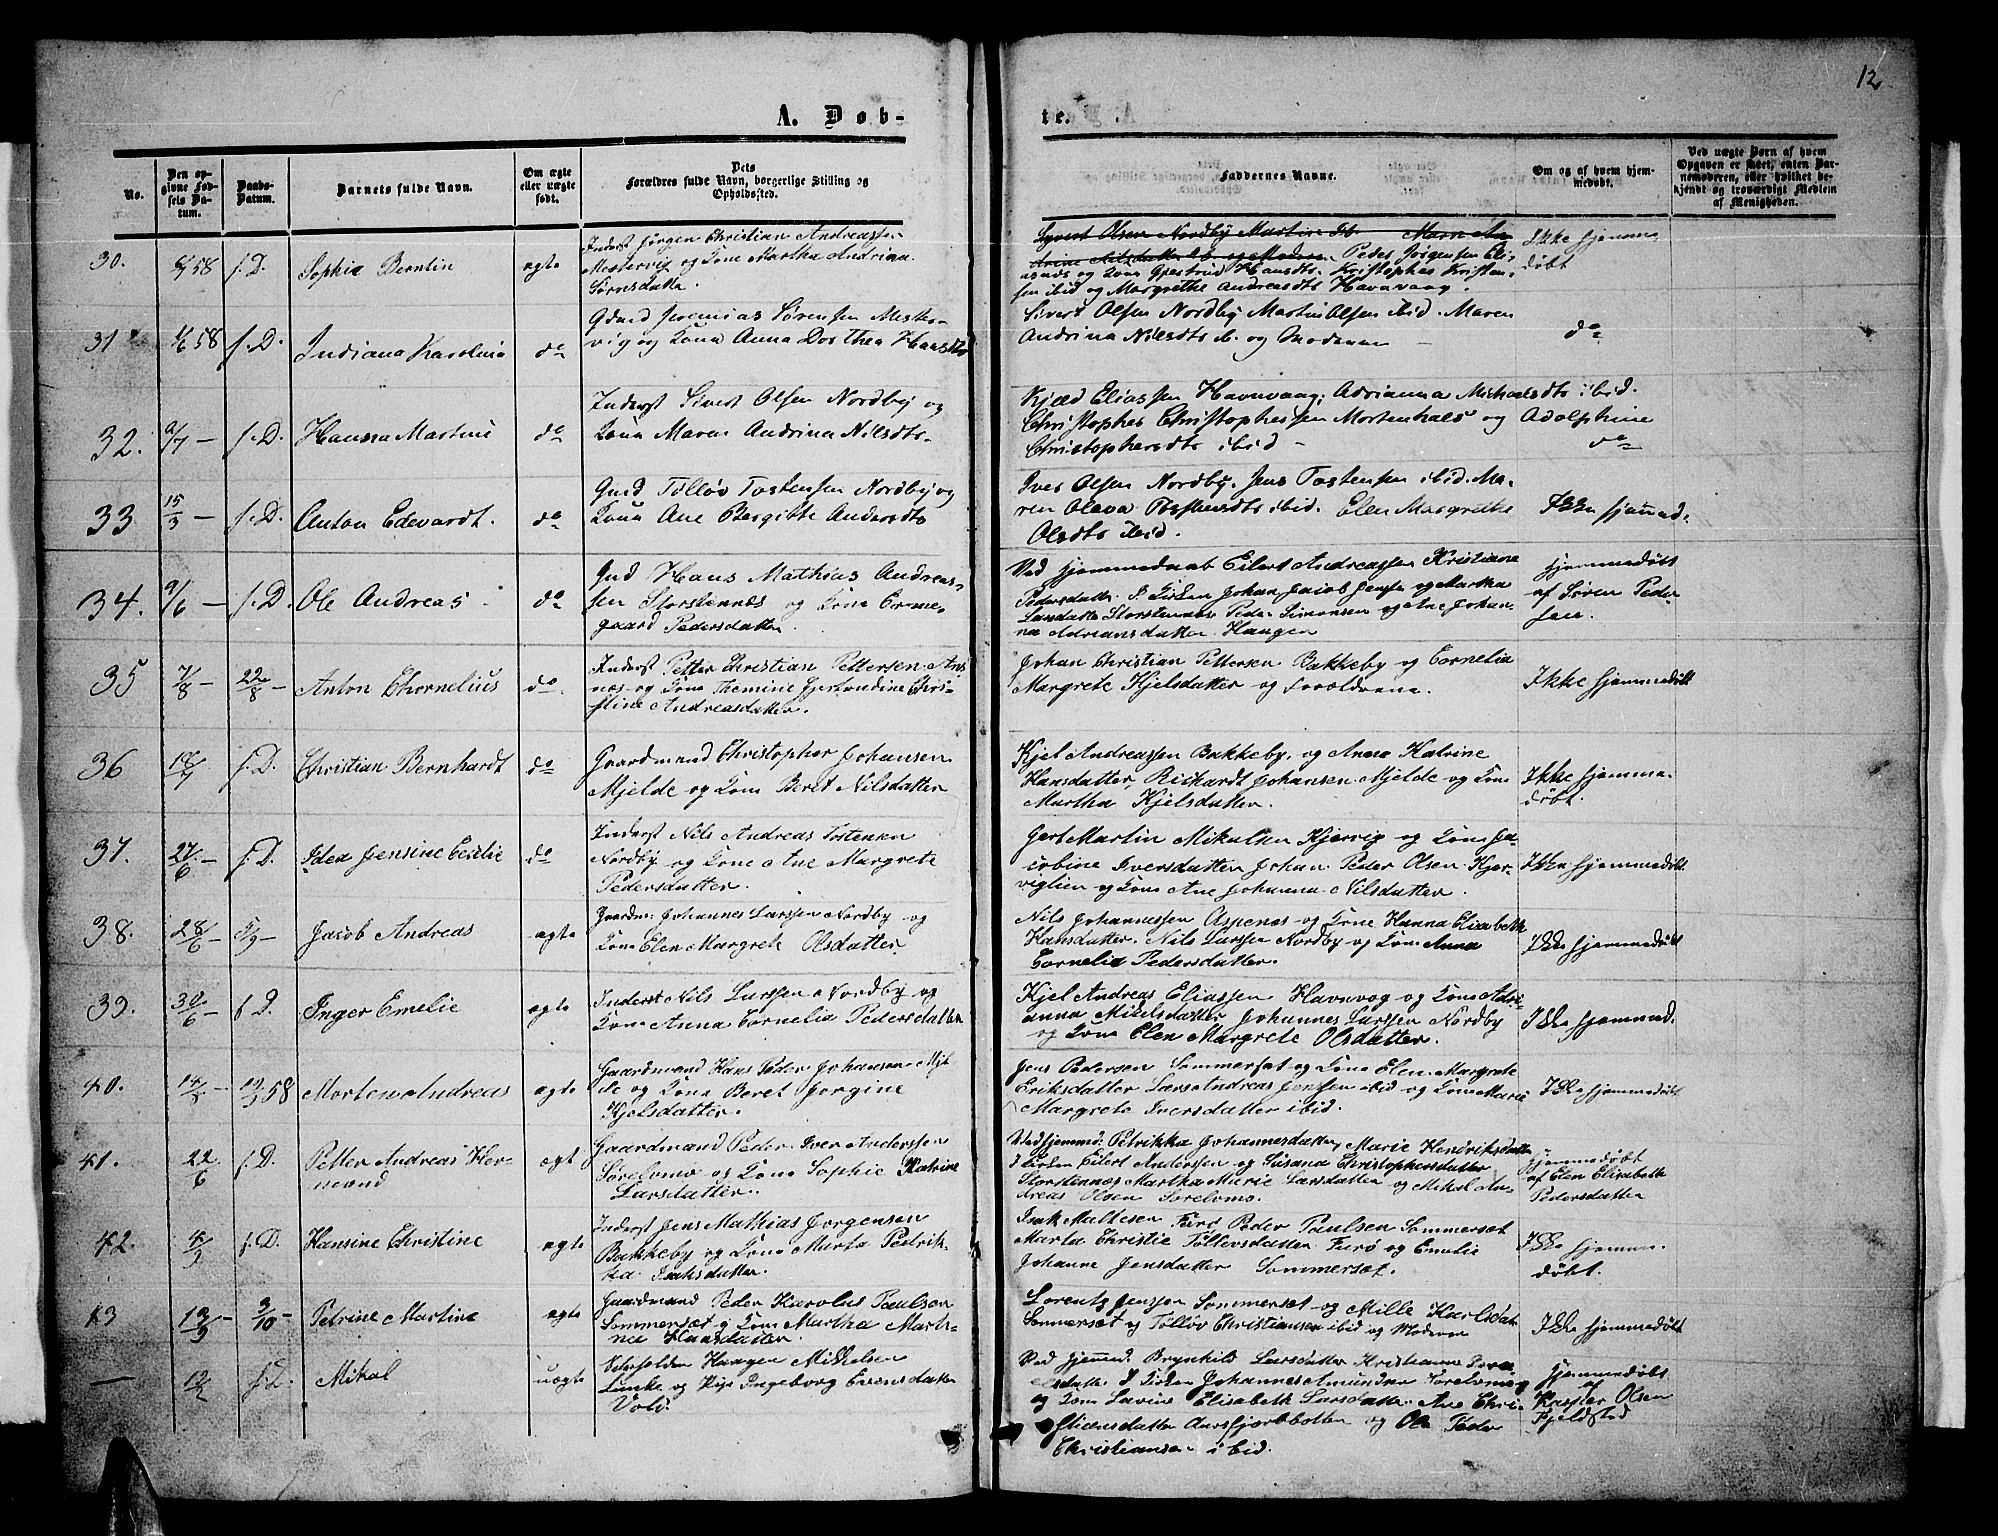 12
A. Døb-
te.
No.
Den op-
givne Fød-
sels Da-
tum.
Daabs-
Datum.
Barnets fulde Navn.
Om ægte
eller uægte
født.
Dets
Forældres fulde Navn, borgerlige Stilling og
Opholdssted.
Faddernes Navne.
Om og af hvem hjem-
medøbt.
Ved uægte Børn af hvem
Opgaven er skeet, enten Bar-
nemoderen, eller hvilket be-
kjendt og troværdigt Medlem
af Menigheden.
30. 58 f.D. Sophie Berntin ægte
Inderst Jørgen Christian Andreassen
Mestervig og Kone Martha Andrina
Sørnsdatter
Peder Jørgensen Eli-
asnæs og Kone Gjertrud Hansdtr. Kristopher Kristen-
sen ibid og Margrethe Andreasdtr Havnvaag.
Ikke hjemme
døbt
31 58 f.D. Indiana Karolina do
Gdmd Jeremias Sørensen Mester-
vig og Kone Anna Dorthea Hansdtr
Sivert Olsen Nordby Martin Olsen ibid. Maren
Andrina Nilsdtr ib. og Moderen
do
32. 9/7 – f.D. Hanna Martine do
Inderst Sivert Olsen Nordby og
Kone Maren Andrina Nilsdtr.
Kjæd Eliassen Havnvaag; Adrianna Michaelsdtr ibid.
Christopher Christophersen Mortenhals og Adolphine
Christophersdtr ibid –
do
33 15/3 – f.D. Anton Edevardt. do
Gmd Tølløv Tostensen Nordby og
Kone Ane Bergitte Andersdtr
Iver Olsen Nordby. Jens Tostensen ibid. Ma-
ren Oleva Tostensdtr ibid. Elen Margrethe
Olsdtr ibid.
Ikke hjemmed.
34. 9/6 – f.D. Ole Andreas do
Gmd Hans Mathias Andreas-
sen Storstennæs og Kone Erme-
gaard Pedersdatter.
Ved Hjemmedaab Eilert Andreassen Kristiane
Pedersdatter. I Kirken Johan Jacob Jensen og Martha
Larsdatter Storstennæs Peder Simonsen og Ane Johan-
na Adriansdatter Haugen
Hjemmedøbt
af Søren Peder
sen.
35 7/8 – 22/8 – Anton Chornelius do
Inderst Petter Christian Pettersen Ans-
næs og Kone Themine Gjertrudine Chri-
stine Andreasdatter.
Johan Christian Pettersen Bakkeby og Cornelia
Margrete Kjelsdatter og Forældrene.
Ikke hjemmedøbt
36 18/7 f.D. Christian Bernhardt do
Gaardmand Christopher Johansen
Mjelde og Kone Beret Nilsdatter
Kjel Andreassen Bakkeby, og Anna Katrine
Hansdatter, Rickardt Johansen Mjelde og Kone
Martha Kjelsdatter.
Ikke hjemme
døbt.
37. 27/6 – f.D. Idea Jensine Cesilie do
Inderst Nils Andreas Tostensen
Nordby og Kone Ane Margrete
Pedersdatter.
Gert Martin Mikalsen Kjervig og Kone Ja-
cobine Iversdatter Johan Peder Olsen Kjer-
viglien og Kone Ane Johanna Nilsdatter.
Ikke hjemmedøbt
38. 28/6 – 5/9 – Jacob Andreas ægte
Gaardm: Johannes Larssen Nordby og
Kone Elen Margrete Olsdatter.
Nils Johannessen Aspenæs og Kone Hanna Elisabeth
Hansdatter. Nils Larssen Nordby og Kone Anna
Cornelia Pedersdatter.
Ikke hjemmedøbt
39. 30/6 – f.D. Inger Emelie ægte
Inderst Nils Larssen Nordby og
Kone Anna Cornelia Pedersdatter
Kjel Andreas Eliassen Havnvog og Kone Adri-
anna Mikelsdatter Johannes Larssen Nordby
og Kone Elen Margrete Olsdatter.
Ikke hjemmed.
40. 58 Morten Andreas ægte
Gaardmand Hans Peder Johansen Mjel-
de og Kone Beret Jorgine
Kjelsdatter.
Jens Pedersen Sommersæt og Kone Elen Margrete
Eriksdatter Lars Andreas Jenssen ibid og Kone Marie
Margrete Iversdatter ibid.
Ikke hjemmedøbt
41. 22/6 f.D. Petter Andreas Her-
mand ægt
Gaardmand Peder Iver Anderssen
Sørelvmo og Kone Sophie Katrine
Larsdatter.
Ved Hjemmd: Petrikka Johannesdatter, Marie Hendriksdatter
I Kirken Eilert Anderssen og Susana Christophersdatter
Storstennæs Martha Marie Larsdatter og Mikal An-
dreas Olsen Sørelvmo.
Hjemmedøbt
af Elen Elisabeth
Pedersdatter
42. f.D. Hansine Christine ægte
Inderst Jens Mathias Jorgensen
Bakkeby og Kone Marta Petrik-
ka Isaksdatter.
Isak Maltesen Furø Peder Paulsen Sommersæt
Marta Christie Tølløvsdatter Furø og Emelie
Johanne Jensdatter Sommersæt.
Ikke hjemme.
døbt.
43 – 3/10 – Petrine Martine ægte
Gaardmand Peder Karolus Paulsen
Sommersæt og Kone Martha Marti-
ne Hansdatter
Lorentz Jenssen Sommersæt og Mille Karlsdat
Sommersæt og Tølløv Christiansen ibid og Moderen
Ikke hjemmedøbt
— 12/2 f.D. Mikal uægte
Haagen Mikkelsen
og Pige Ingeborg
Ved Hjemmd. Brynhild Larsdatter Kristianne
I Kirken Johannes Amundsen Sørelvmo
og Kone Lavine Elisabeth Larsdatter. Ane Chri-
stiansdatter Aursfjordbotten og Ole Peder
Christiansen ibid.
Hjemmedøbt
af
Kasper Olsen
Fjeldstad